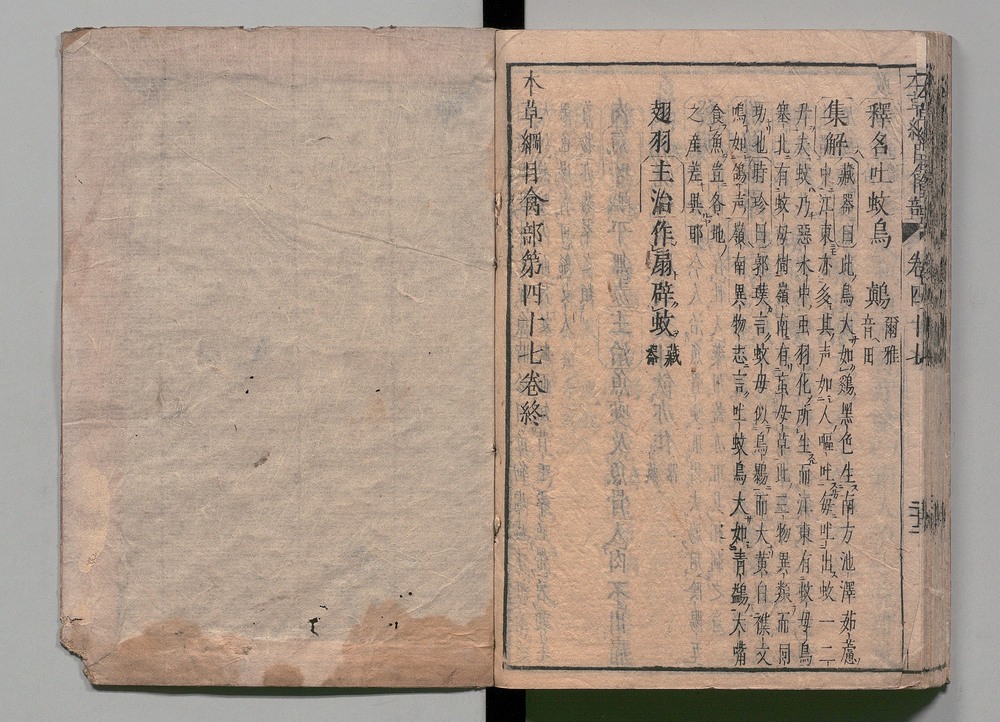 釋名吐蚊鳥 鷏 爾雅音田
集解 藏器曰此鳥大如雞黑色生南方池澤茹蘆
中江東亦多其声如人嘔吐每吐出蚊一二
升夫蚊乃惡水中虫羽化所生而江東有蚊母鳥
塞北有蚊母樹嶺南有䖟母草此三物異類而同
功也時珍曰郭璞云蚊母似烏鷃而大黄白襍文
鳴如鴿声嶺南異物志言吐蚊鳥大如青鷁大嘴
食魚豈各地
之産差異耶
翅羽主治作扇辟蚊 藏器
本草綱目禽部第四十七卷終
本草綱目禽部 卷四十七